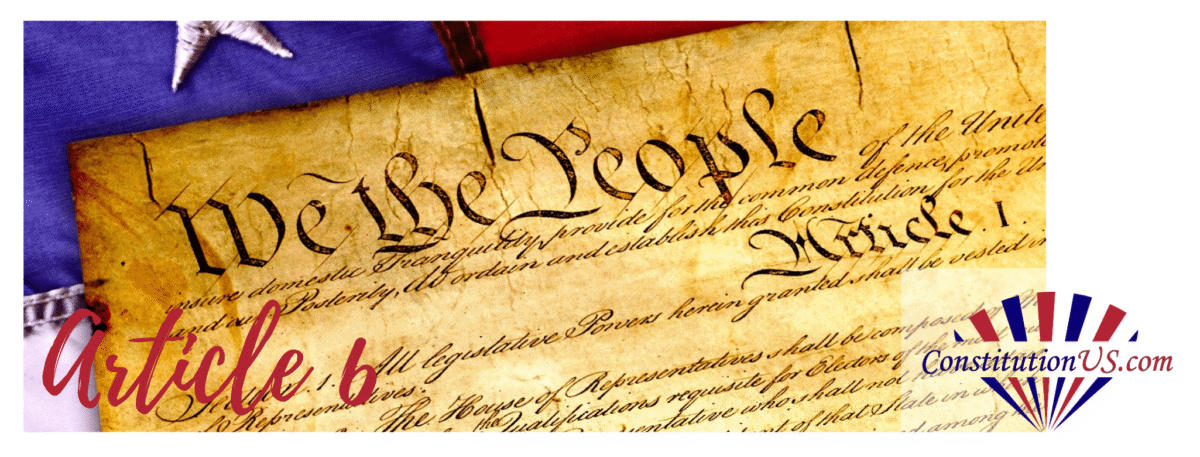 We the People
of the Unite
insure domestic Tranquility, provide for the common defence, promote
and our Posterity, do ordain and establish this Constitution for the Un
Article. I.
Section. 1. All legislative Powers herein granted shall be vested in
of Representatives.
The House of Representatives shall be composed of
the Qualifications requisite for Electors of the most
Article 6
ConstitutionUS.com